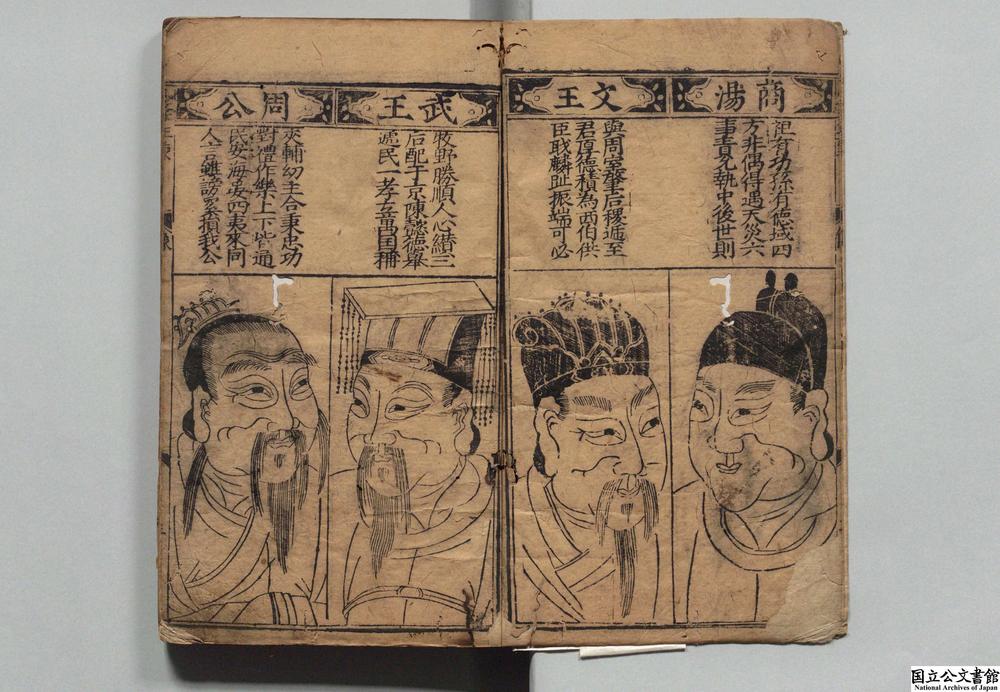 商湯
有功孫有德域四
方非偶得遇天災六
事責執中後世則
文王
與周室肇后稷遞至
君厚德積為西伯供
臣麟趾振端可必
武王
牧野勝順人心纉三
后配于京陳懿德舉
民一孝囯稱
周公
夾輔幼主合秉忠功
禮作樂上下皆通
民安海晏四夷來同
人言雖謗奚損我公
国立公文書館
National Archives of Japan